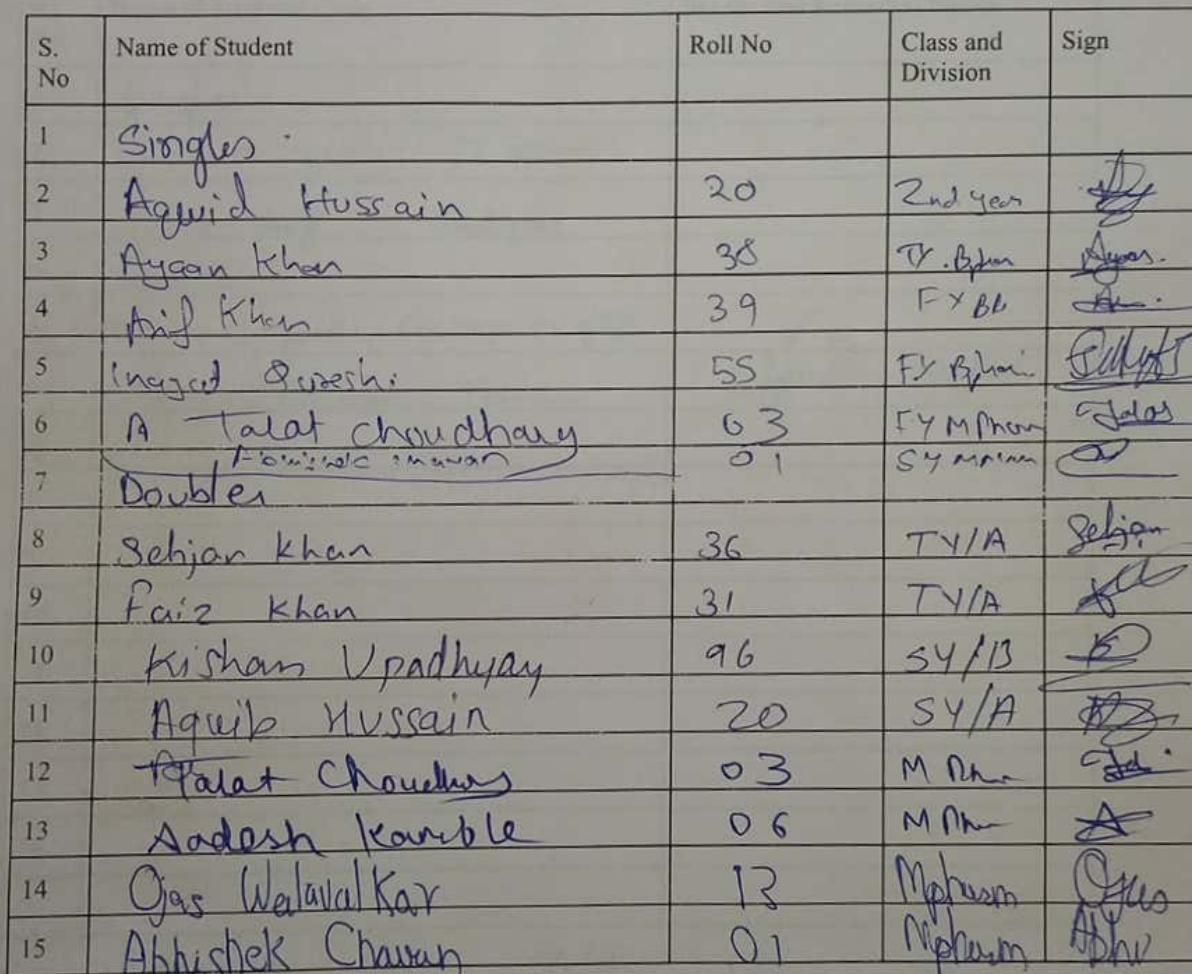 S. No Name of Student Roll No Class and Division Sign
1 Singles
2 Aquid Hussain 20 2nd year
3 Ayaan Khan 38 TY. Ayaan
4 Arif Khan 39 FY
5 Inayat Qureshi 55 FY
6 A Talat Choudhary 03 FY M
01 SY
7 Doubles
8 Sehjan Khan 36 TY/A Sehjan
9 Faiz Khan 31 TY/A
10 Kishan Upadhyay 96 SY/B
11 Aquib Hussain 20 SY/A
12 Talat Choudhary 03 M
13 Aadesh Kamble 06 M
14 Ojas Walavalkar 13 Mpharm Ojas
15 Abhishek Chavan 01 Mpharm Abhi